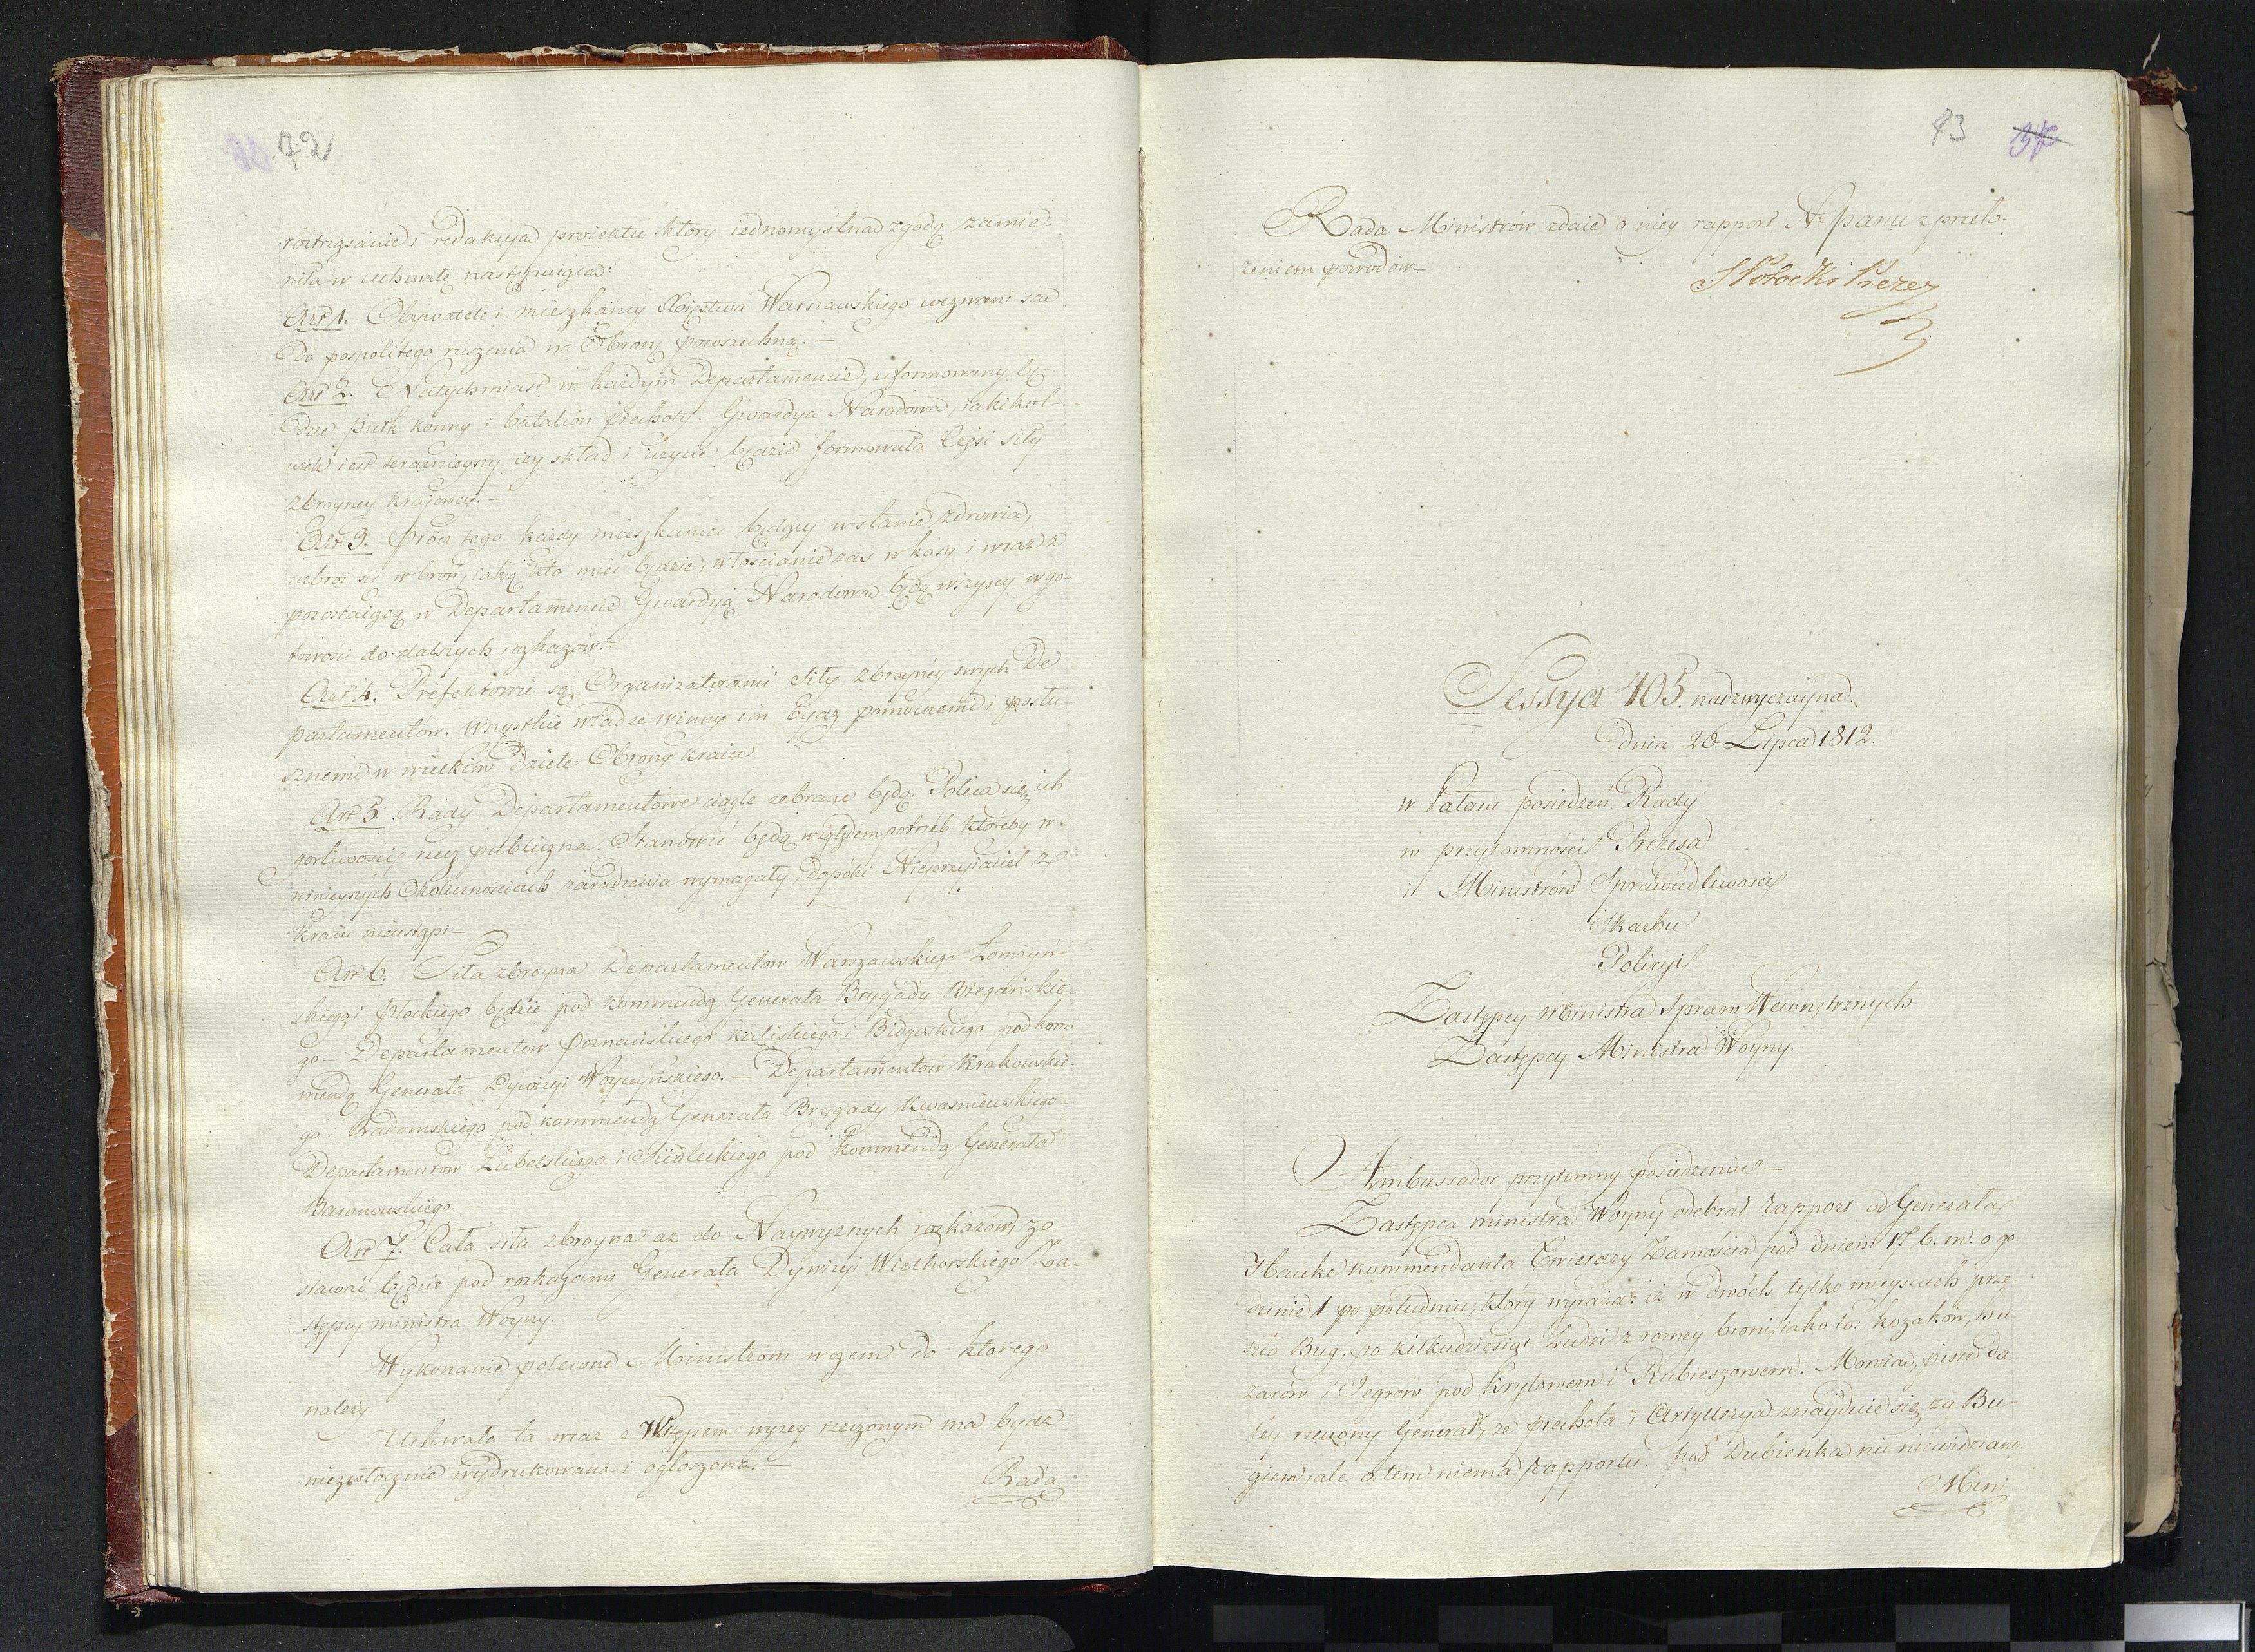 42
roztrząsanie i redakcya proiektu, który iednomyślna zgodą zamie-
niła w uchwałę następuiącą:
Art 1. Obywatele i mieszkańcy Xięstwa Warszawskiego wezwani są
do pospolitego ruszenia na Obronę powszechną. —
Art 2. Natychmiast w każdym Departamencie, uformowany bę-
dzie pułk konny i batalion piechoty. Gwardya Narodowa, iakikol-
wiek iest teraźnieyszy iey skład i użycie będzie formowała Część siły
zbroyney kraiowey. —
Art 3. Prócz tego każdy mieszkaniec będący w stanie zdrowia,
uzbroi się w broń, iaką kto mieć będzie, włościanie zas w kosy i wraz z
pozostaiącą w Departamencie Gwardyą Narodową będą wszyscy w go-
towości do dalszych rozkazów. —
Art 4. Prefektowie są Organizatorami Siły zbroyney swych De
partamentów. Wszystkie władze winny im bydź pomocnemi i posłu-
sznemi w wielkim dziele Obrony kraiu
Art 5. Rady Departamentowe ciągle zebrane będą. Poleca się ich
gorliwości rzecz publiczna. Stanowić będą względem potrzeb któreby w
ninieyszych Okolicznościach zaradzenia wymagały, dopóki Nieprzyiaciel z
kraiu nieustąpi —
Art 6. Siła zbroyna Departamentow Warszawskiego Łomżyń-
skiego, i Płockiego będzie pod kommendą Generała Brygady Biegańskie-
go — Departamentow Poznańskiego Kaliskiego i Bidgoskiego pod kom-
mendą Generała Dywizyi Woyczyńskiego. — Departamentow Krakowskie-
go i Radomskiego pod kommendą Generała Brygady Kwasniewskiego —
Departamentow Lubelskiego i Siedleckiego pod kommendą Generała
Baranowskiego. —
Art 7. Cała siła zbroyna az do Naywyższych rozkazów, zo
stawać będzie pod rozkazami Generała Dywizyi Wielhorskiego Za-
stępcy ministra Woyny.
Wykonanie polecone Ministrom wczem do ktorego
należy
Uchwała ta wraz z Wstępem wyzey rzeczonym ma bydź
niezwłocznie wydrukowana i ogłoszona. —
Rada
43 37
Rada Ministrów zdaie o niey rapport N. Panu z przeło-
żeniem powodów —
S Potocki Prezes
Sessya 405. nadzwyczayna.
dnia 20 Lipca 1812.
w Pałacu posiedzeń Rady
w przytomności Prezesa
i Ministrów Sprawiedliwości
Skarbu
Policyi
Zastępcy Ministra Spraw Wewnętrznych
Zastępcy Ministra Woyny.
Ambassador przytomny posiedzeniu —
Zastępca ministra Woyny odebrał rapport od Generała
Hauke kommendanta Twierdzy Zamościa pod dniem 17. b. m. o go
dzinie 1 po południu, który wyraża: iż w dwóch tylko mieyscach prze
szło Bug, po kilkudziesiąt Ludzi z rozney broni, iako to: kozaków, hu
zarów i Jegrów pod Kryłowem i Rubieszowem. Mowią, pisze da
ley rzeczony Generał, że piechota i Artyllerya znayduie się za Bu-
giem, ale o tem niema rapportu. Pod Dubienką nic niewidziano.
Mini